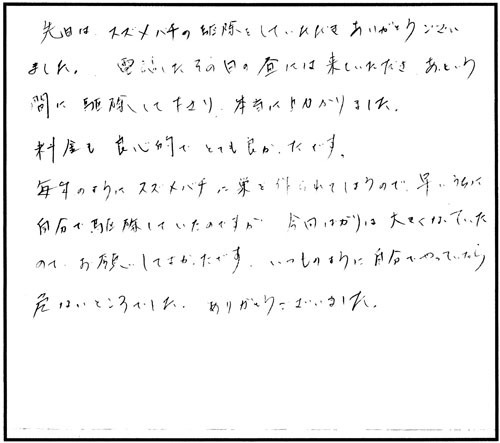 先日は、スズメバチの駆除をしていただきありがとうござい
ました。 電話したその日の昼には来ていただき、あっという
間に駆除して下さり、本当に助かりました。
料金も良心的でとても良かったです。
毎年のようにスズメバチに巣を作られてしまうので、早いうちに
自分で駆除していたのですが 今回ばかりは大きくなっていた
ので、お願いしてよかったです。 いつものように自分でやっていたら
危ないところでした。 ありがとうございました。